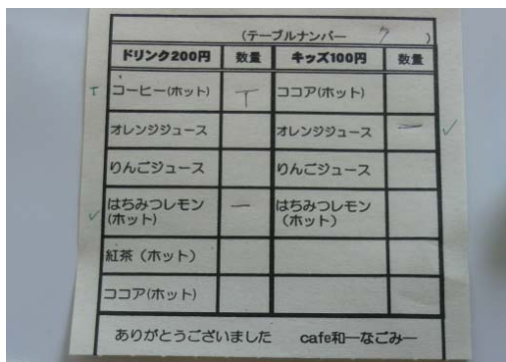 (テーブルナンバー 7 )
ドリンク200円 数量 キッズ100円 数量
T コーヒー(ホット) T ココア(ホット)
オレンジジュース オレンジジュース 一 ✓
りんごジュース りんごジュース
✓ はちみつレモン 一 はちみつレモン
(ホット) (ホット)
紅茶(ホット)
ココア(ホット)
ありがとうございました cafe和―なごみ―